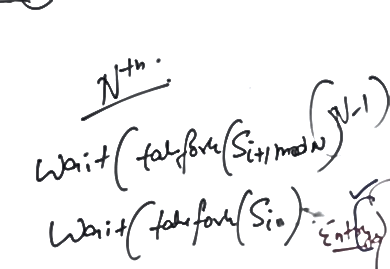 Nth.
Wait(takefork(Si+1 mod N)
N-1)
Wait(takefork(Si)
Entry